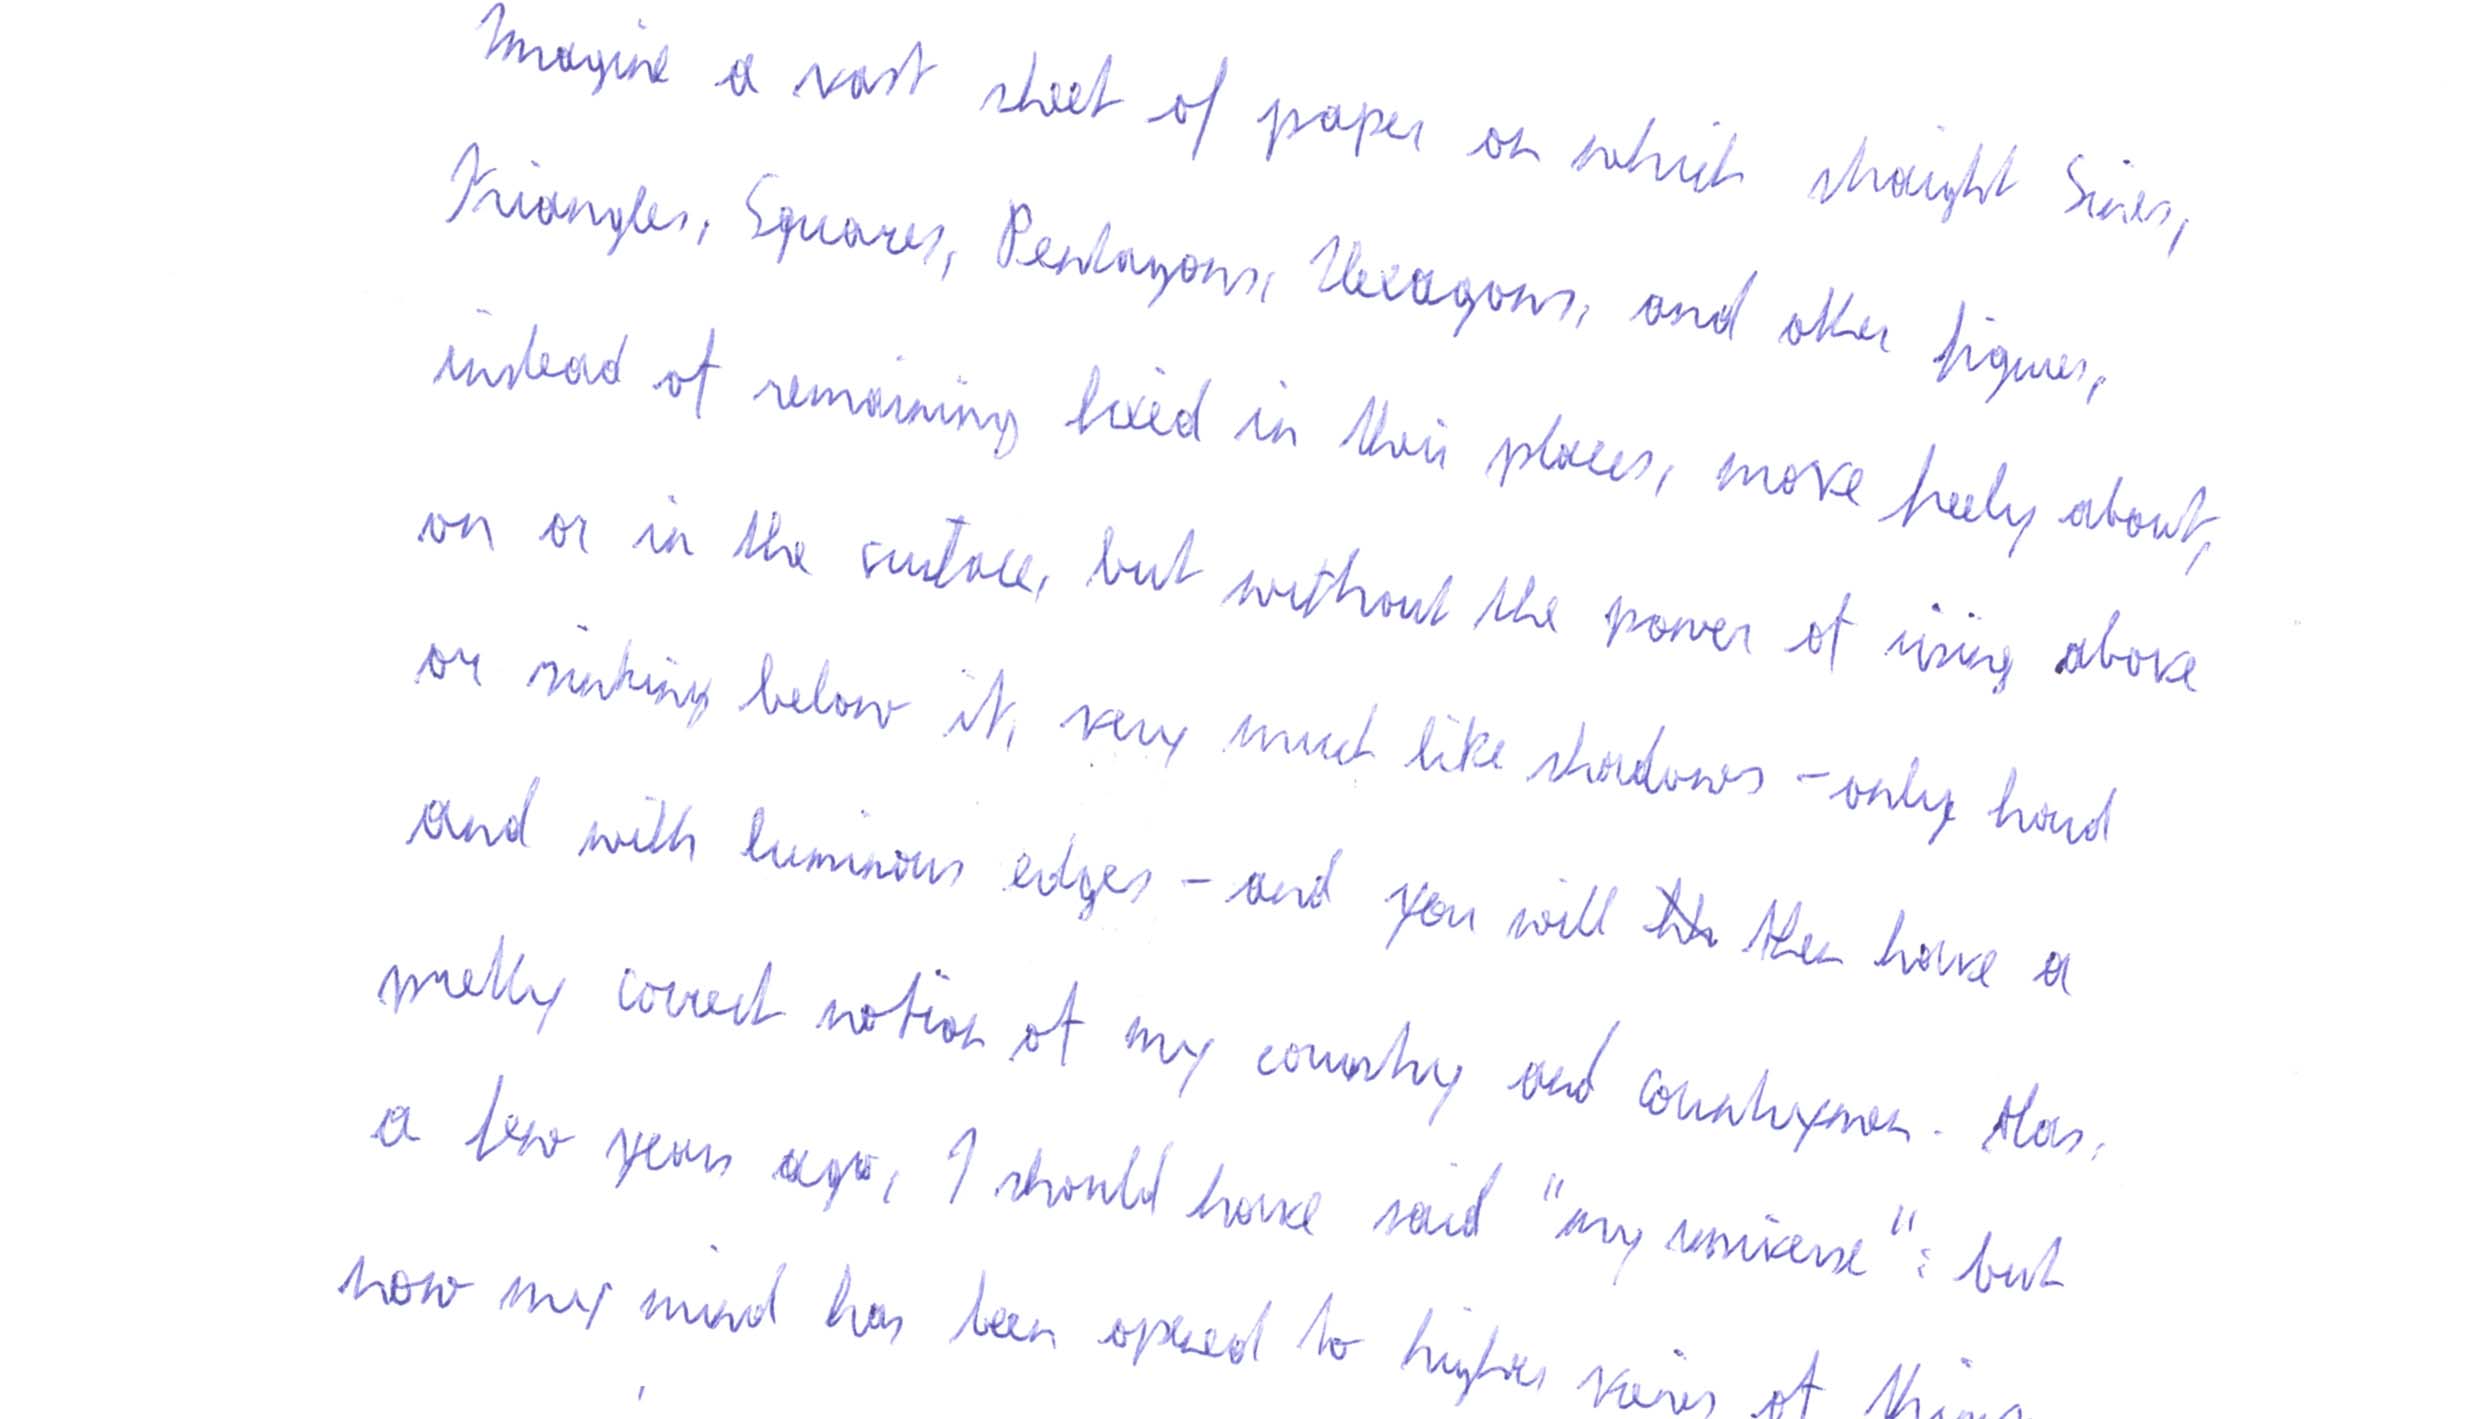 Imagine a vast sheet of paper on which straight Lines,
Triangles, Squares, Pentagons, Hexagons, and other figures,
instead of remaining fixed in their places, move freely about,
on or in the surface, but without the power of rising above
or sinking below it, very much like shadows - only hard
and with luminous edges - and you will then have a
pretty correct notion of my country and countrymen. Alas,
a few years ago, I should have said "my universe": but
now my mind has been opened to higher views of